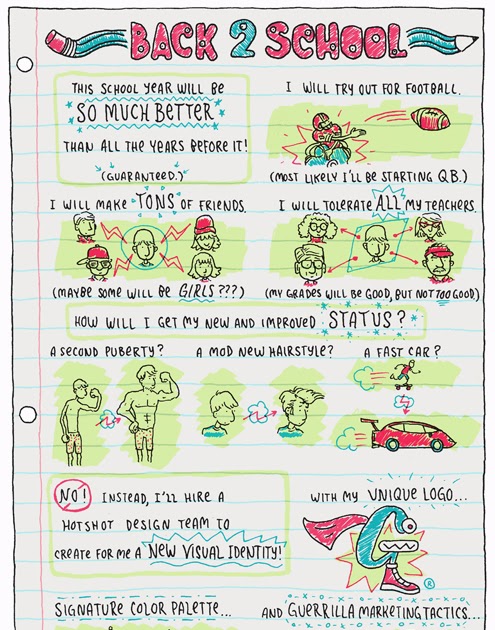 BACK 2 SCHOOL
THIS SCHOOL YEAR WILL BE
SO MUCH BETTER
THAN ALL THE YEARS BEFORE IT!
(GUARANTEED.)
I WILL TRY OUT FOR FOOTBALL.
(MOST LIKELY I'LL BE STARTING QB.)
I WILL MAKE TONS OF FRIENDS.
(MAYBE SOME WILL BE GIRLS???)
I WILL TOLERATE ALL MY TEACHERS.
(MY GRADES WILL BE GOOD, BUT NOT TOO GOOD)
HOW WILL I GET MY NEW AND IMPROVED STATUS?
A SECOND PUBERTY?
A MOD NEW HAIRSTYLE?
A FAST CAR?
NO! INSTEAD, I'LL HIRE A
HOTSHOT DESIGN TEAM TO
CREATE FOR ME A NEW VISUAL IDENTITY!
WITH MY UNIQUE LOGO...
®
SIGNATURE COLOR PALETTE...
AND GUERRILLA MARKETING TACTICS...